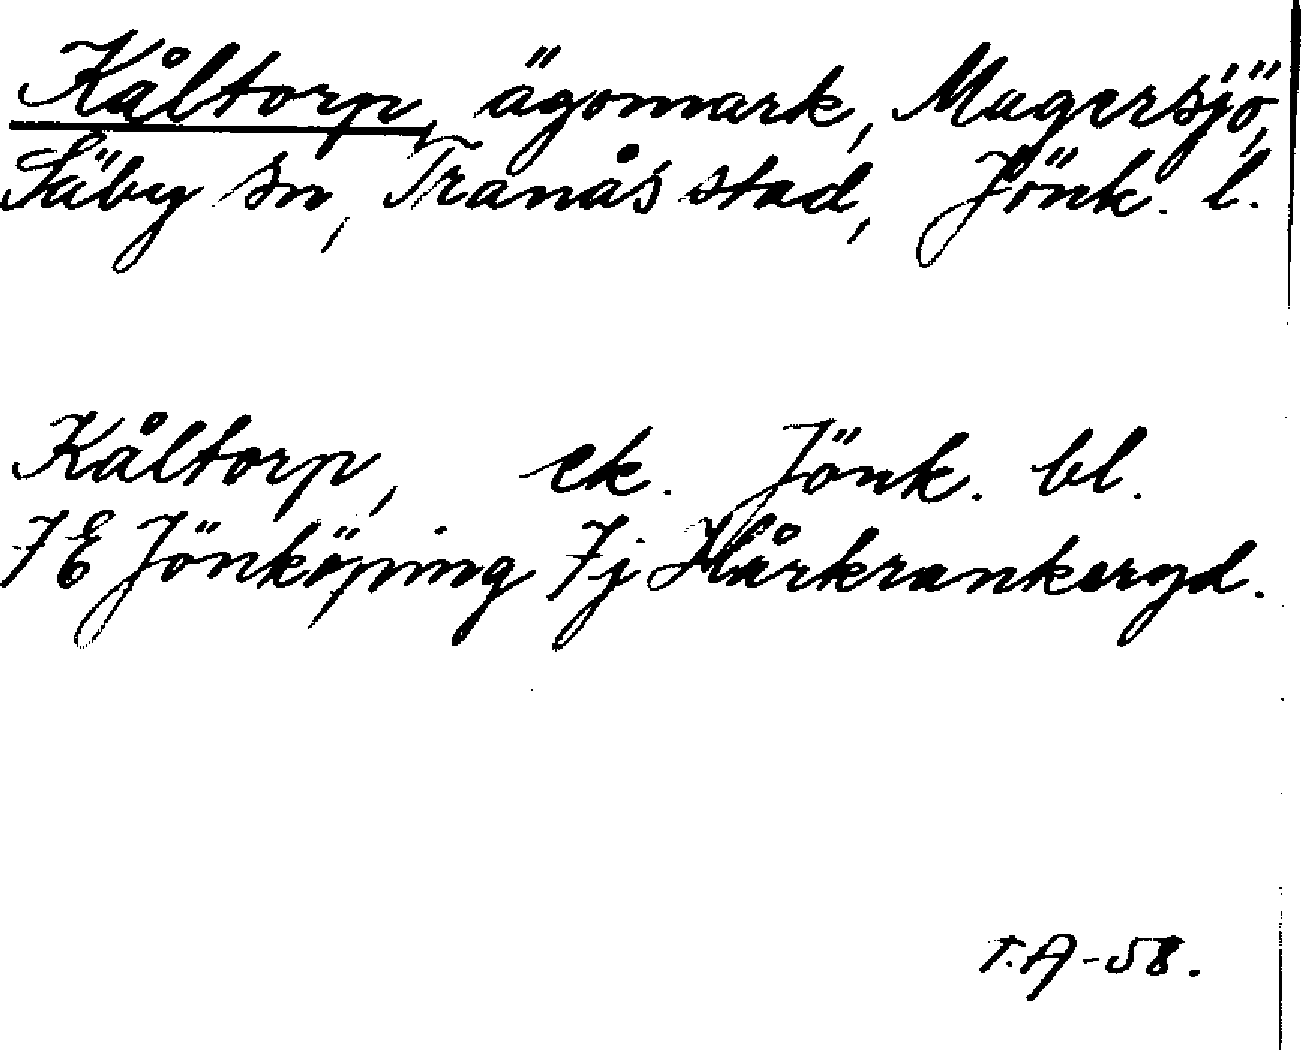 Kåltorp, ägomark, Magersjö,
Säby sn, Tranås stad, Jönk. l.
Kåltorp, ek. Jönk. bl.
7 E Jönköping 7j Hårkrankeryd.
T.A-58.